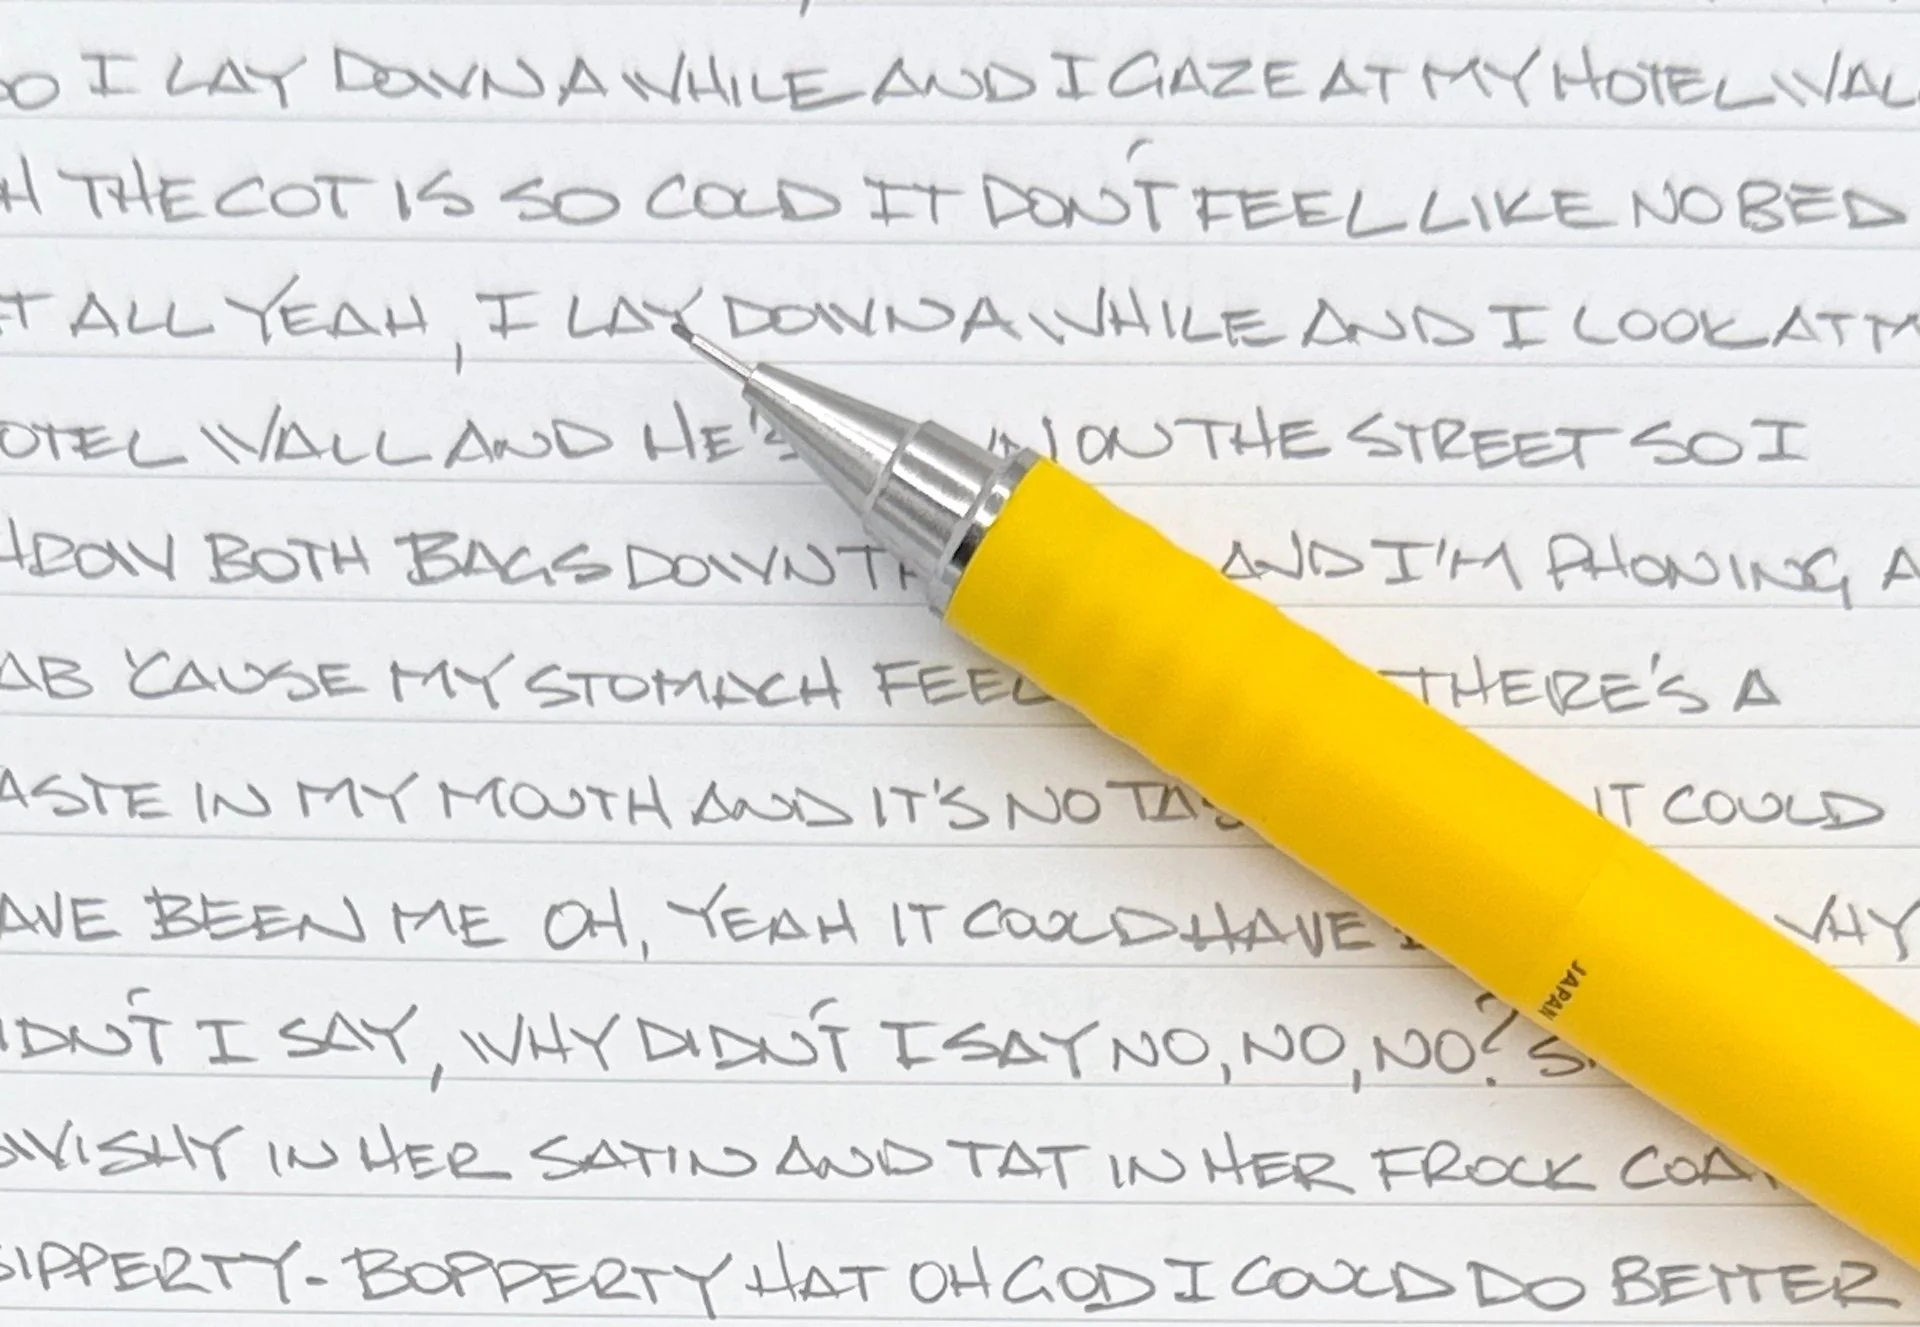 I LAY DOWN A WHILE AND I GAZE AT MY HOTEL
THE COT IS SO COLD IT DON'T FEEL LIKE NO BED
ALL YEAH, I LAY DOWN A WHILE AND I LOOK AT
WALL AND HE'S ON THE STREET SO I
BOTH BAGS DOWN AND I'M PHONING A
'CAUSE MY STOMACH FEEL THERE'S A
IN MY MOUTH AND IT'S NO IT COULD
BEEN ME OH, YEAH IT COULD HAVE WHY
I SAY, WHY DIDN'T I SAY NO, NO, NO?
IN HER SATIN AND TAT IN HER FROCK
BOPPERTY HAT OH GOD I COULD DO BETTER
JAPAN